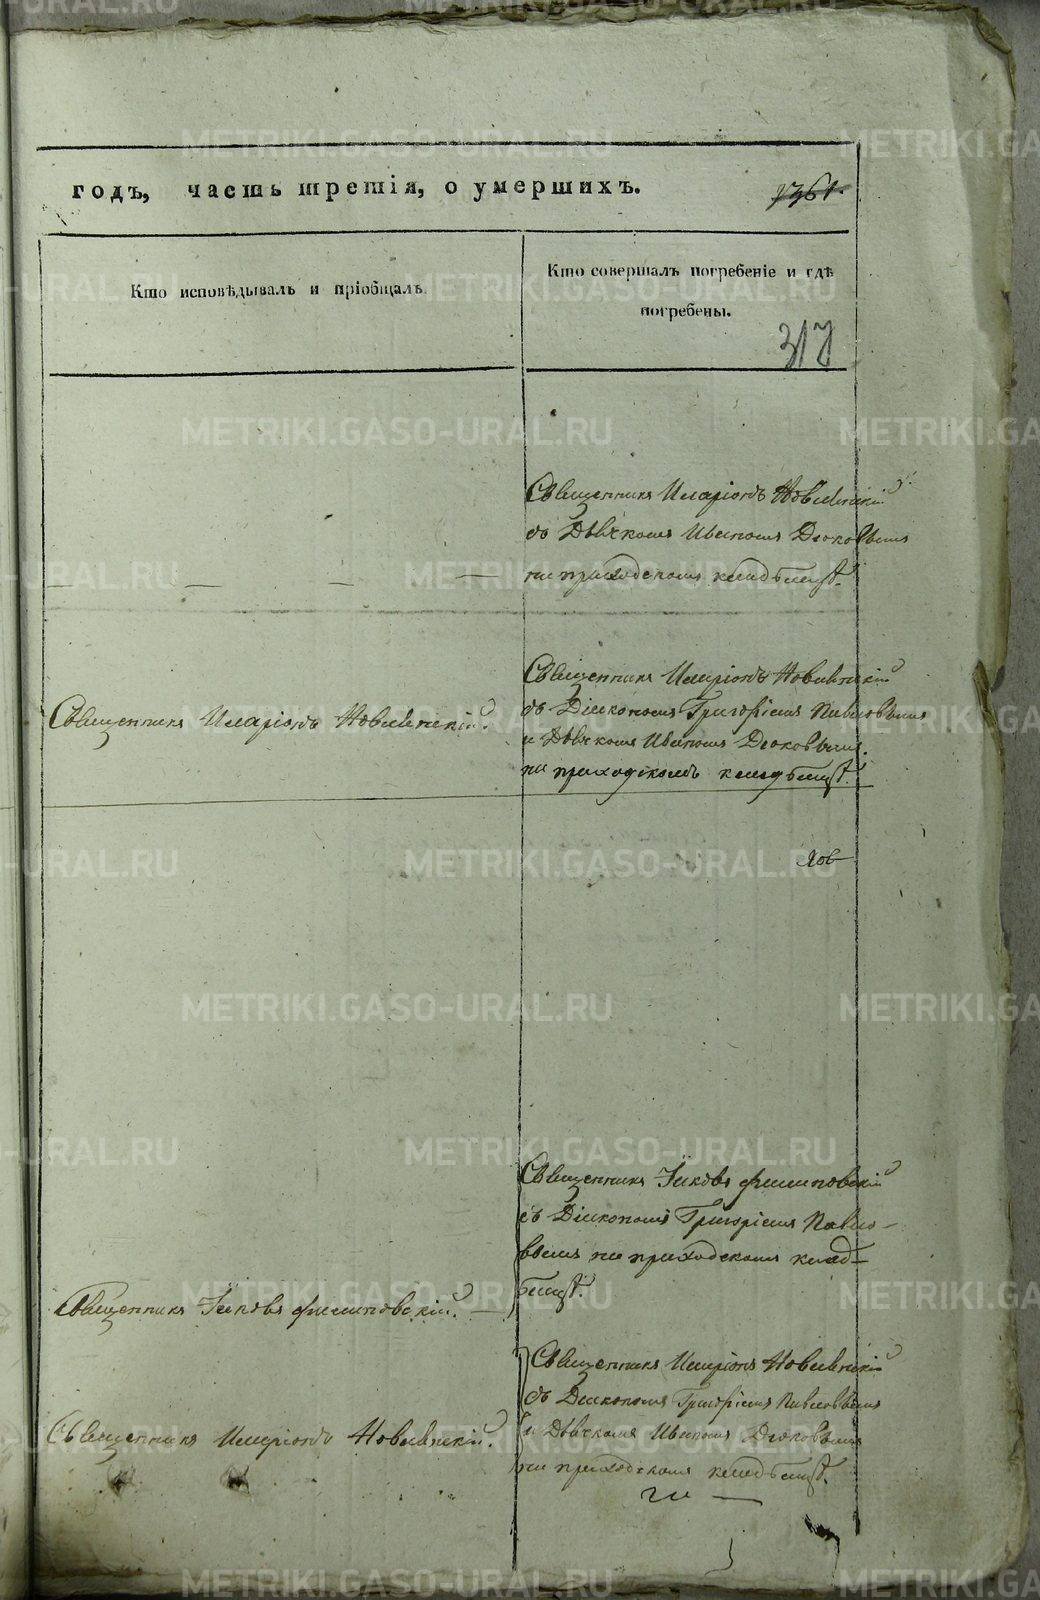 годъ, часть третія, о умершихъ.
1361.
Кто исповѣдывалъ и пріобщалъ.
Кто совершалъ погребеніе и гдѣ
погребены.
317
Священникъ Иларіонъ Новинскій
съ Дьячкомъ Иваномъ Дюковымъ
на приходскомъ кладбищѣ.
Священникъ Иларіонъ Новинскій.
Священникъ Иларіонъ Новинскій
съ Діакономъ Григоріемъ Павловымъ
и Дьячкомъ Иваномъ Дюковымъ.
на приходскомъ кладбищѣ.
Священникъ Іаковъ Филиповскій
съ Діакономъ Григоріемъ Павло-
вымъ на приходскомъ клад-
бищѣ.
Священникъ Іаковъ Филиповскій.
Священникъ Иларіонъ Новинскій
съ Діакономъ Григоріемъ Павловымъ
и Дьячкомъ Иваномъ Дюковымъ
на приходскомъ кладбищѣ.
Священникъ Иларіонъ Новинскій.
METRIKI.GASO-URAL.RU